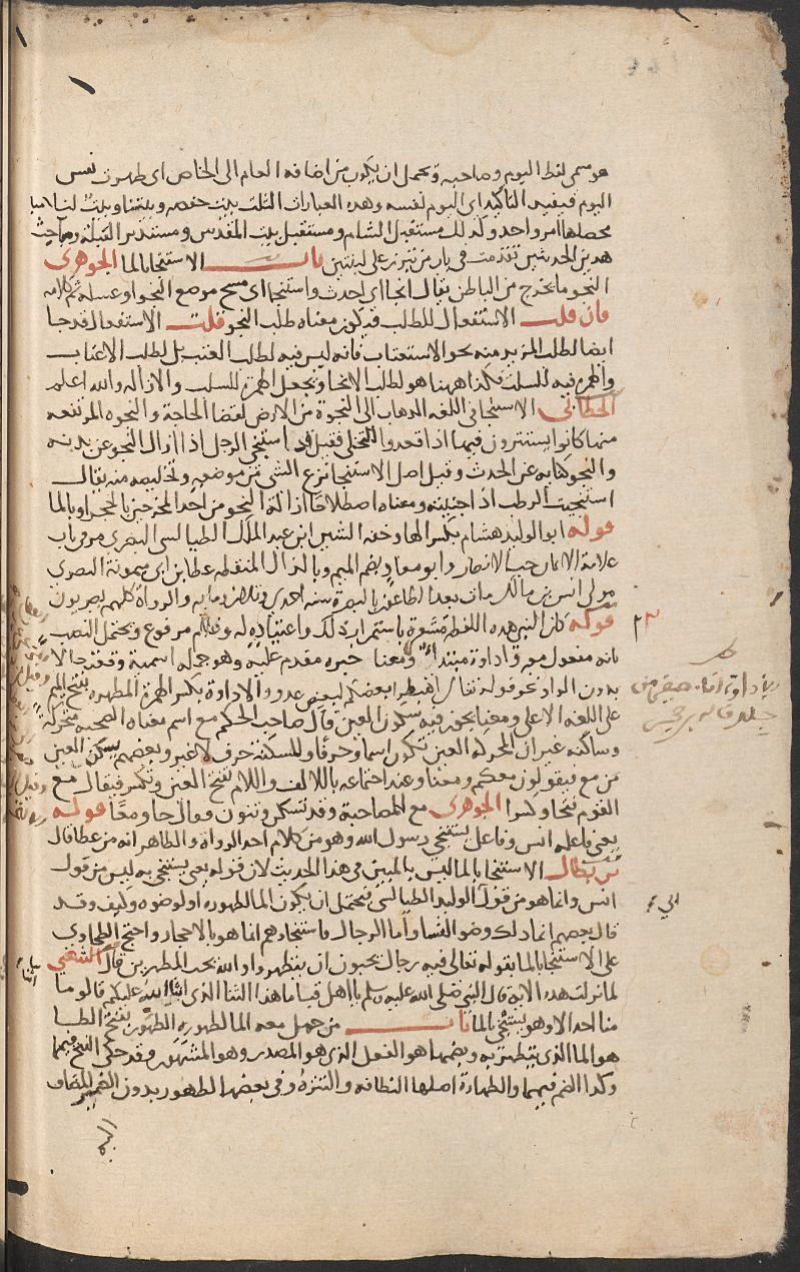 هو مسمى لفظ اليوم وصاحبه ويحتمل ان يكون من اضافه العام الى الخاص اى ظهرت نفس
اليوم فيفيد التاكيد اى اليوم لنفسه وهده العبارات الثلث بيت حفصه وبيتنا وبيت لنا
محصلها امر واحد وكدلك مستقبل الشام ومستقبل بيت المقدس ومستدبر القبلة ومباحث
هدين الحديثين تقدمت فى باب من تبرز على لبنتين باب الاستنجا بالما الجوهرى
النجو ما يخرج من البطن يقال انجا اى احدث واستنجا اى مسح موضع النجو او غسله تم كلامه
فان قلت الاستفعال للطلب فيكون معناه طلب النجو قلت الاستفعال قد جا
ايضا لطلب المزيد فيه نحو الاستعتاب فانه ليس فيه لطلب العتب بل لطلب الاعتاب
والهمزة فيه للسلب فكذا ههنا هو لطلب الانجا وتجعل الهمزة للسلب والازاله والله اعلم
الخطابى الاستنجا فى اللغه الدهاب الى النجوة من الارض لقضا الحاجة والنجوه المرتفعه
منها كانوا يستترون فيها اذا قعدوا للتخلى فقيل قد استنجى الرجل اذا ازال النجو عن بدنه
والنجو كنايه عن الحدث وقيل اصل الاستنجا نزع الشى من موضعه وتخليصه منه يقال
استنجيت الرطب اذ اجنيته ومعناه اصطلاحا ازالة النجو من احد المخرجين بالحجر او بالما
قوله ابو الوليد هشام بكسر الها وخفه الشين ابن عبد الملك الطيالسى البصرى مر فى باب
علامة الايمان حب الانصار وابو معاد بضم الميم وبالذال المنقطه عطا بن ابى ميمونة البصرى
مولى انس بن مالك مات بعد الطاعون بالبصرة سنه احدى وثلاثين ومايه والرواة كلهم بصريون
قوله كان النبى هده اللفظة مشعرة باستمرار ذلك واعتياده له وغلام مرفوع ويحتمل النصب
بانه مفعول معه واداوة مبتدا ومعنا خبره مقدم عليه وهو جمله اسمية وقعت حالا
بدون الواو نحو قوله تعالى اهبطوا بعضكم لبعض عدو والاداوة بكسر الهمزة المطهره بفتح الميم
على اللغه الاعلى ومعنا يجوز فيه سكون العين قال صاحب المحكم مع اسم معناه الصحبه متحركة
وساكنه غير ان المحركه العين تكون اسما وحرفا والمسكنة حرف لا غير وبعضهم يسكن العين
من مع فيقولون معكم ومعنا وعند اجتماعه باللالف واللام تفتح العين وتكسر فيقال مع
القوم فتحا وكسرا الجوهرى مع للمصاحبة وقد تسكن وتنون فيقال جاوا معا قوله
يعنى فاعله انس وفاعل يستنجى رسول الله وهو من كلام احد الرواة والظاهر انه من عطا قال
بن بطال الاستنجا بالما ليس بالمبين فى هذا الحديث لان قوله يعنى يستنجى به ليس من قول
انس وانما هو من قول الوليد الطيالسى فيحتمل ان يكون الما لطهوره او لوضوه وكيف وقد
قال بعضهم انما ذلك وضو النسا واما الرجال فاستنجاوهم انما هو بالاحجار واحتج الطحاوى
على الاستنجا بالما بقوله تعالى فيه رجال يحبون ان يتطهروا والله يحب المطهرين قال الشعبى
لما نزلت هده الايه قال النبى صلى الله عليه وسلم يا اهل قبا ما هذا الثنا الذى اثنا الله عليكم قالوا ما
منا احد الا وهو يستنجى بالما باب من حمل معه الما لطهوره الطهور بفتح الطا
هو الما الذى يتطهر به وبضمها هو الفعل الذى هو المصدر وهو المشهور وقد حكى الفتح فيهما
وكدا الضم فيهما والطهارة اصلها النظافه والتنزه وفى بعضها الطهور بدون الضمير المضاف
اليه